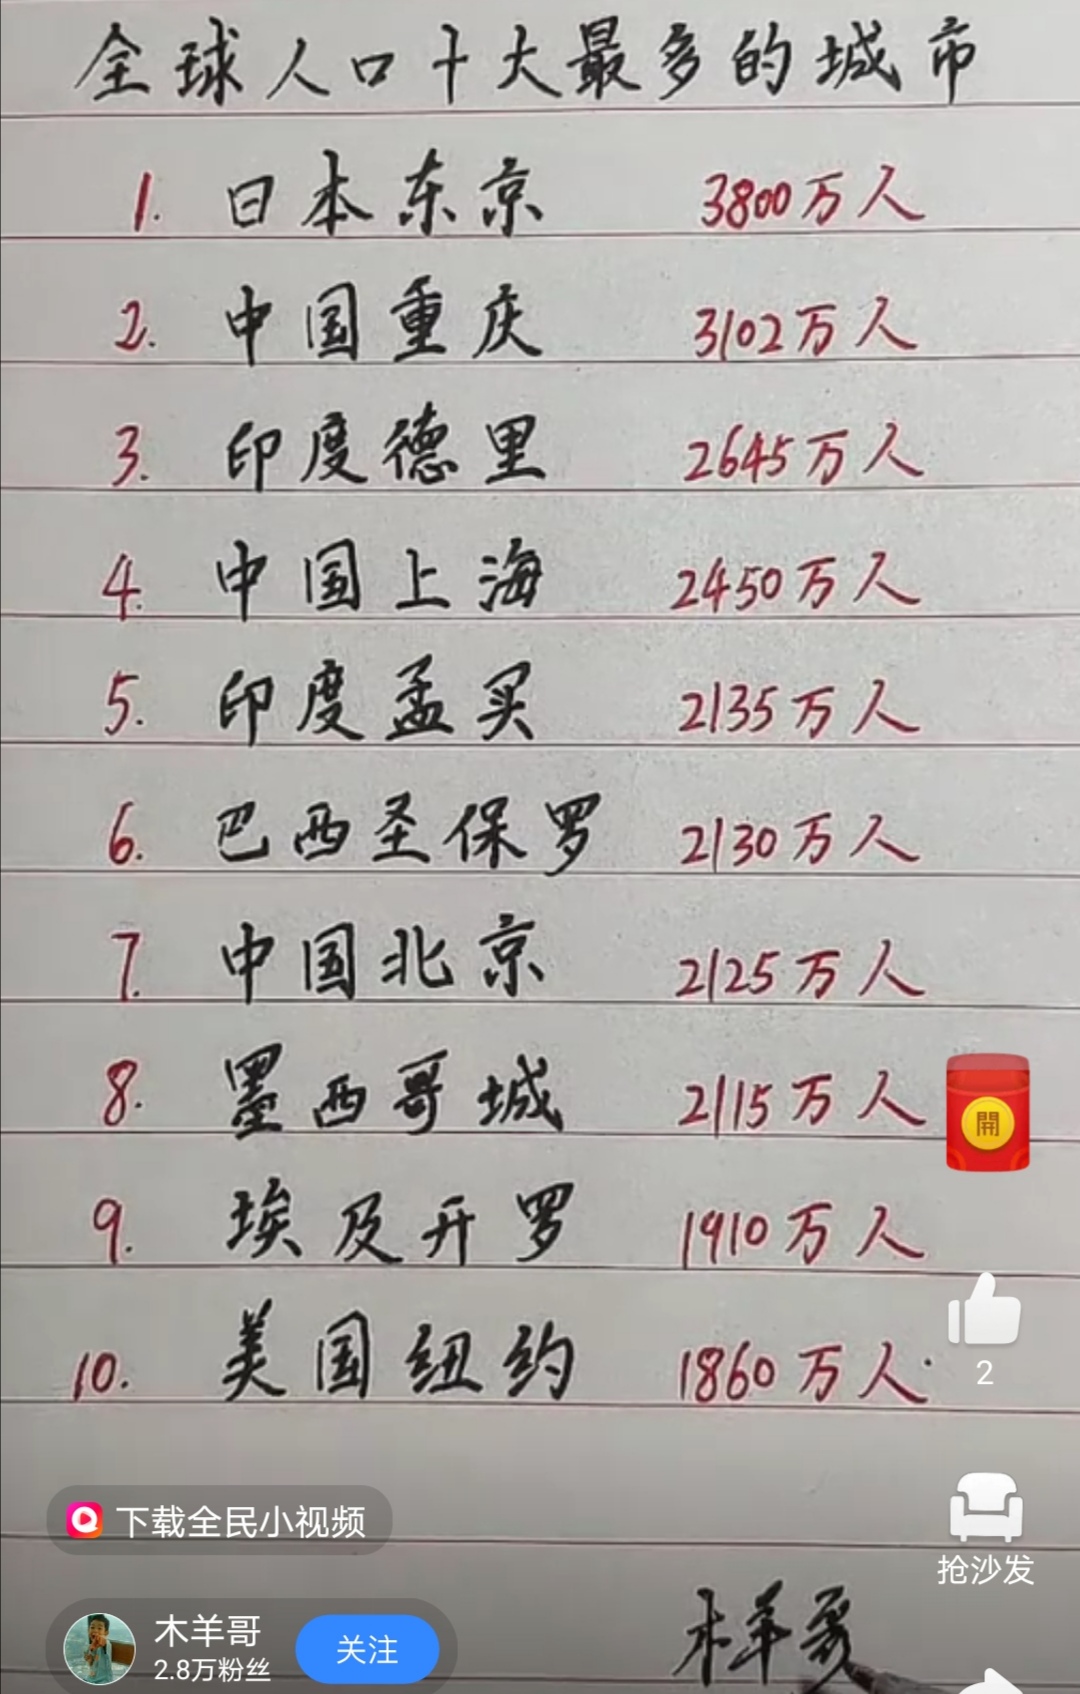 全球人口十大最多的城市
1. 日本东京 3800万人
2. 中国重庆 3102万人
3. 印度德里 2645万人
4. 中国上海 2450万人
5. 印度孟买 2135万人
6. 巴西圣保罗 2130万人
7. 中国北京 2125万人
8. 墨西哥城 2115万人
開
9. 埃及开罗 1910万人
10. 美国纽约 1860万人.
2
下载全民小视频
抢沙发
木羊哥
2.8万粉丝
关注
木羊哥